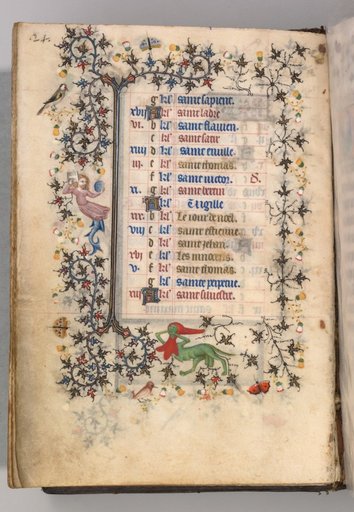 24.
g kl' sainte sapience.
xviii A kl' saint ladre
vii. b kl' saint flauien.
c kl' saint
xv d kl' saint
iiii. e kl' saint thomas.
f kl' saint victor. 8.
xii. g kl' saint bertin
A kl' vigille
b kl' Le iour de noel.
viii c kl' saint estienne.
d kl' saint jehan.
xvi e kl' Les innocens.
v. f kl' saint thomas.
g kl' sainte
xiii A kl' saint siluestre.